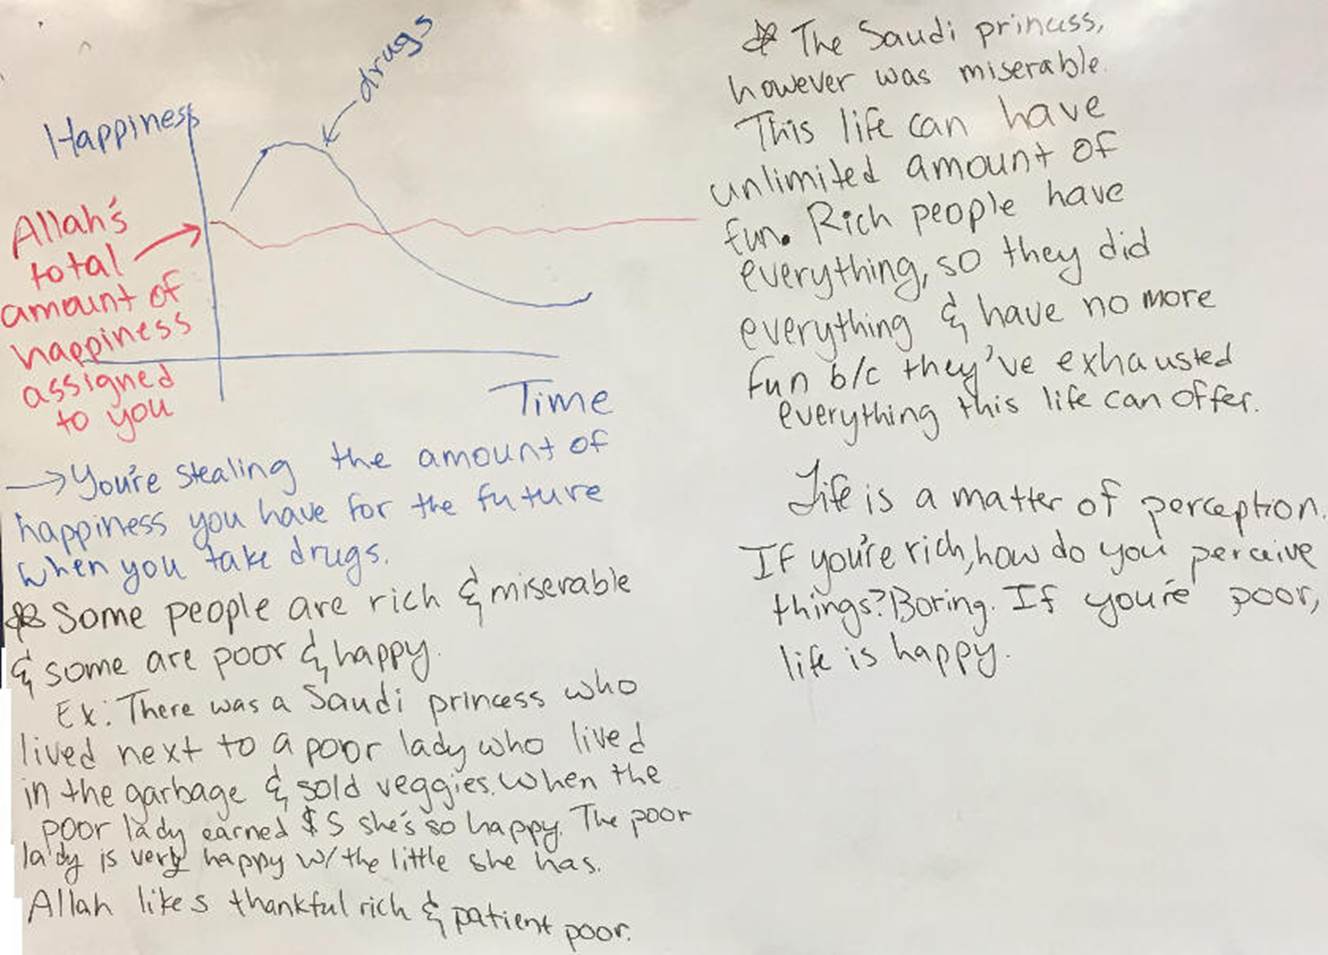 drugs
Happiness
Allah's
total
amount of
happiness
assigned
to you
Time
→ You're stealing the amount of
happiness you have for the future
when you take drugs.
Some people are rich & miserable
& some are poor & happy.
Ex: There was a Saudi princess who
lived next to a poor lady who lived
in the garbage & sold veggies. When the
poor lady earned $5 she's so happy. The poor
lady is very happy w/ the little she has.
Allah likes thankful rich & patient poor.
The Saudi princess,
however was miserable.
This life can have
unlimited amount of
fun. Rich people have
everything, so they did
everything & have no more
fun b/c they've exhausted
everything this life can offer.
Life is a matter of perception.
If you're rich, how do you perceive
things? Boring. If you're poor,
life is happy.